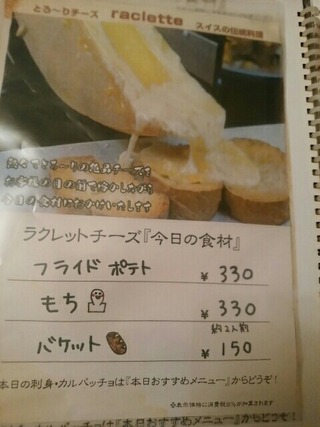 とろ～りチーズ raclette スイスの伝統料理
熱々でとろ～りの絶品チーズを
お客様の目の前で溶かしながら
今日の食材におかけいたします
ラクレットチーズ『今日の食材』
フライドポテト ¥330
もち ¥330
約2人前
バケット ¥150
本日の刺身・カルパッチョは『本日おすすめメニュー』からどうぞ！
※表示価格に消費税10%が加算されます
カルパッチョは『本日おすすめメニュー』からどうぞ！